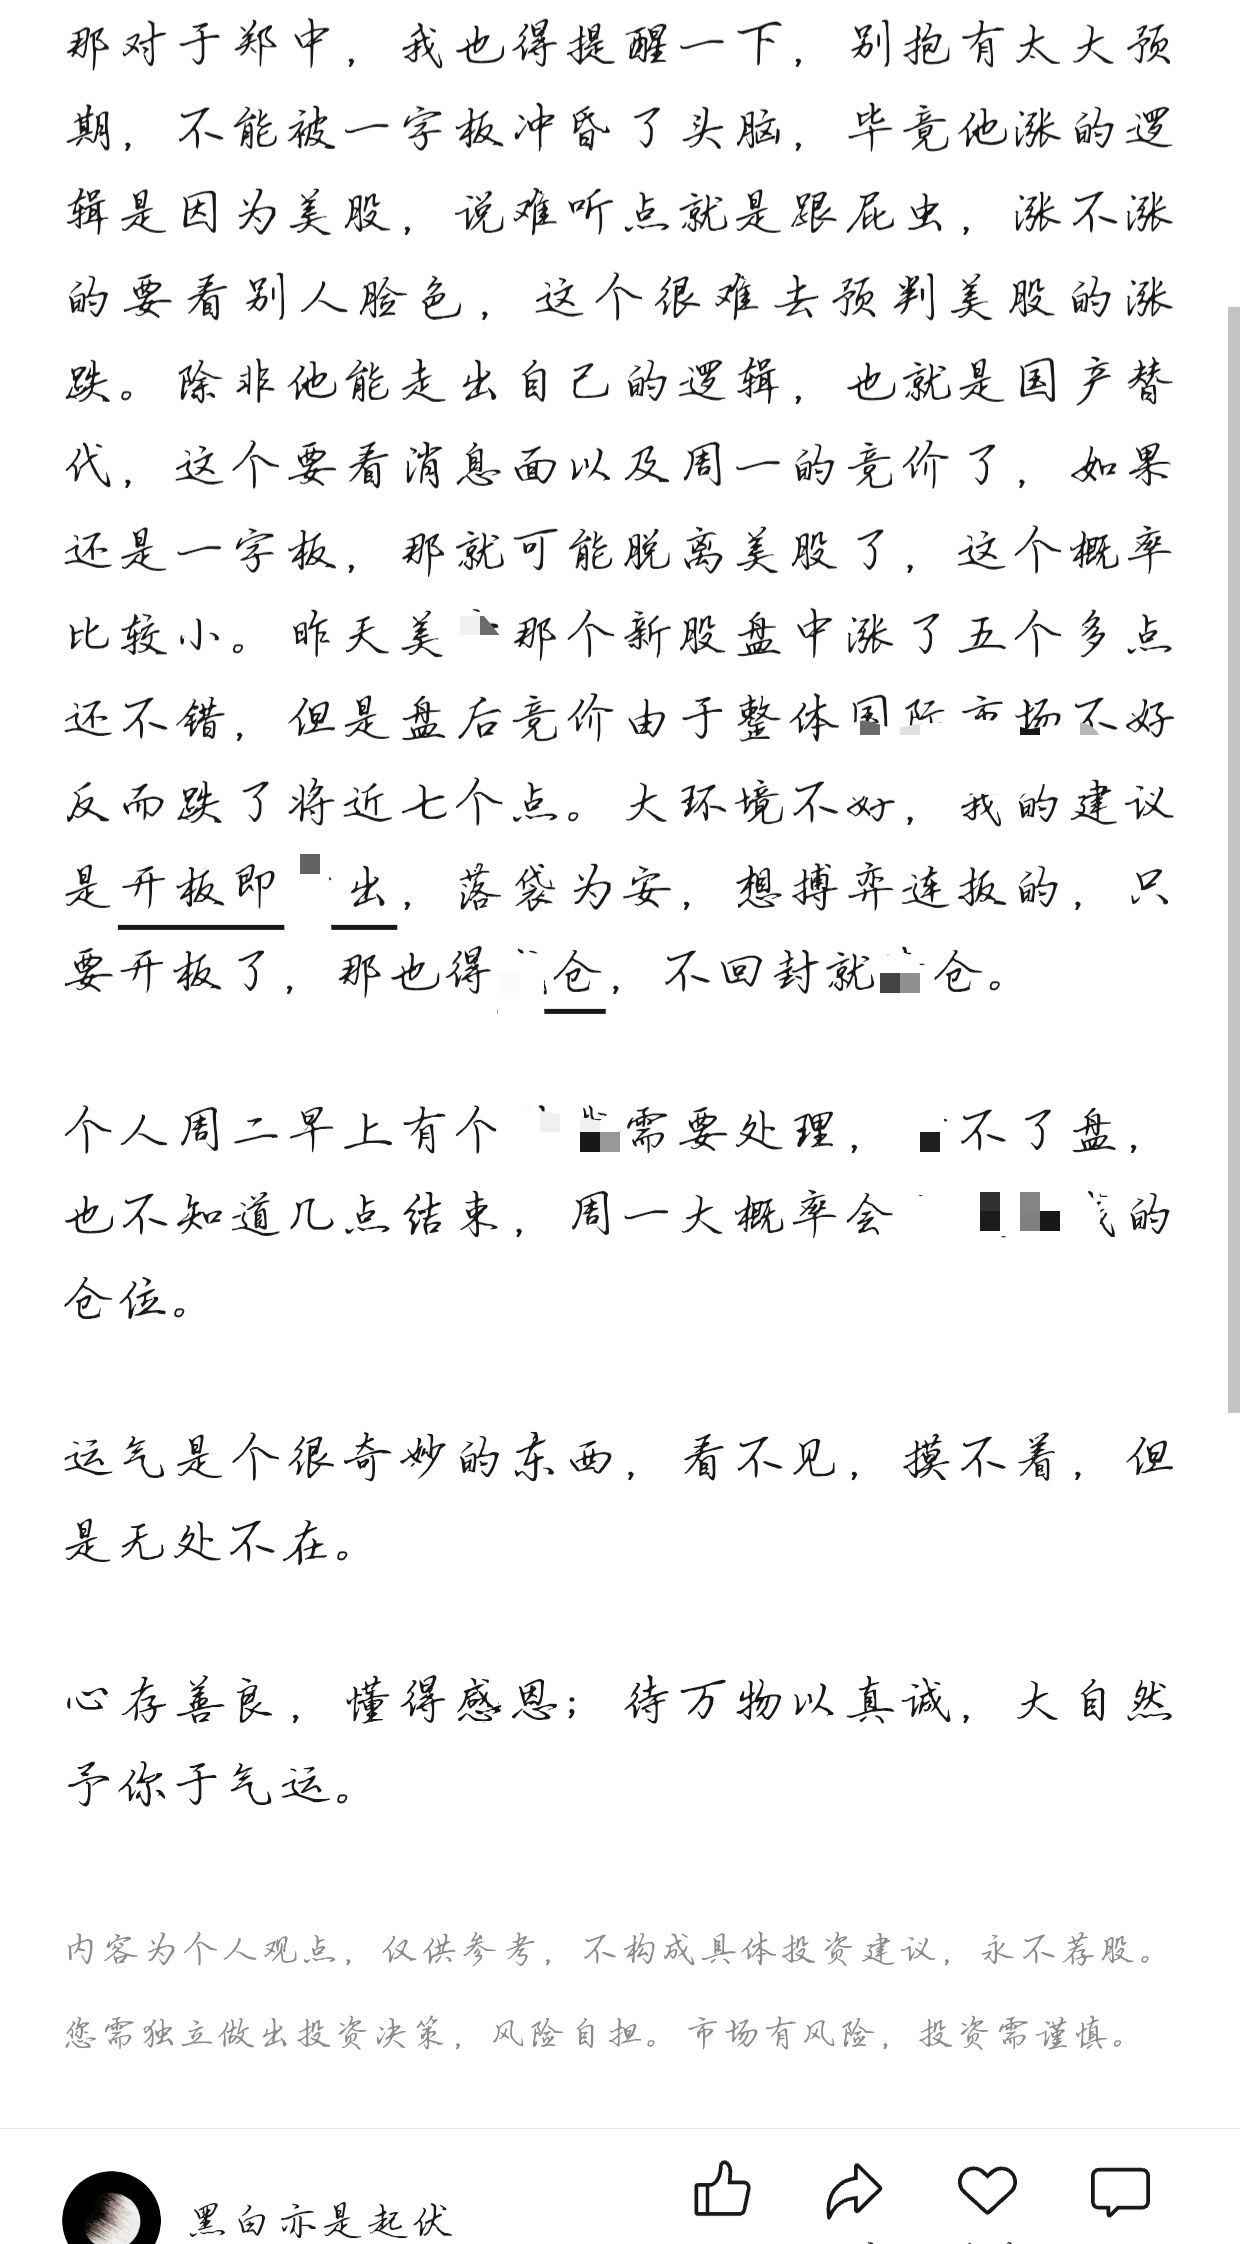 那对于郑中，我也得提醒一下，别抱有太大预
期，不能被一字板冲昏了头脑，毕竟他涨的逻
辑是因为美股，说难听点就是跟屁虫，涨不涨
的要看别人脸色，这个很难去预判美股的涨
跌。除非他能走出自己的逻辑，也就是国产替
代，这个要看消息面以及周一的竞价了，如果
还是一字板，那就可能脱离美股了，这个概率
比较小。昨天美那个新股盘中涨了五个多点
还不错，但是盘后竞价由于整体国际市场不好
反而跌了将近七个点。大环境不好，我的建议
是开板即出，落袋为安，想搏弈连扳的，只
要开板了，那也得仓，不回封就仓。
个人周二早上有个需要处理，不了盘，
也不知道几点结束，周一大概率会的
仓位。
运气是个很奇妙的东西，看不见，摸不着，但
是无处不在。
心存善良，懂得感恩；待万物以真诚，大自然
予你于气运。
内容为个人观点，仅供参考，不构成具体投资建议，永不荐股。
您需独立做出投资决策，风险自担。市场有风险，投资需谨慎。
黑白亦是起伏